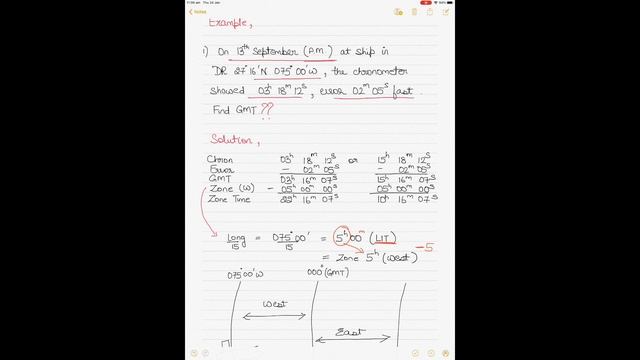 11:09 am Thu 20 Jan
Notes
Example,
1) On 13th September (P.M.) at ship in
DR 27° 16'N 075° 00'W, the chronometer
showed 03h 18m 12s, error 02m 05s fast.
Find GMT ??
Solution,
Chron 03h 18m 12s or 15h 18m 12s
Error - 02m 05s - 02m 05s
GMT 03h 16m 07s 15h 16m 07s
Zone (W) - 05h 00m 00s 05h 00m 00s
Zone Time 10h 16m 07s
Long/15 = 075° 00'/15 = 5h 00m (LIT)
= Zone 5h (West) -5
075° 00'W 000° (GMT)
West
East